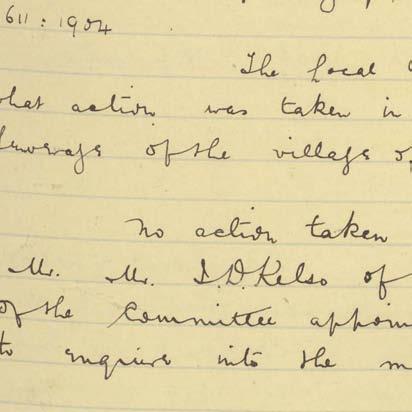 611 : 1904
The local
what action was taken in
sewerage of the village of
No action taken
Mr. Mr. J.D. Kelso of
of the Committee appoin
to enquire into the m